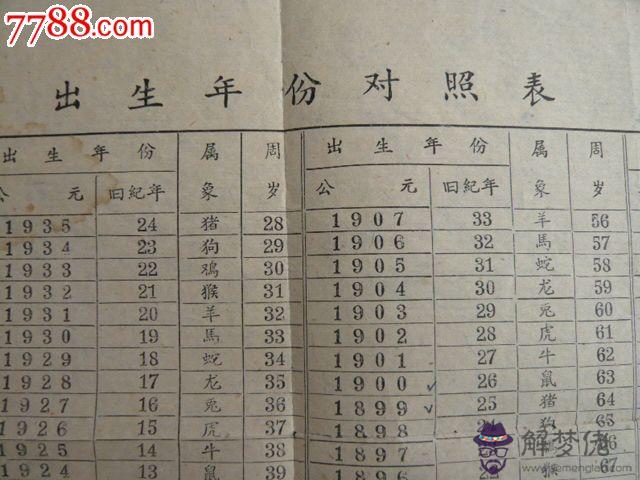 7788.com
出生年份对照表
出生年份 属象 周岁 出生年份 属象 周岁
公元 旧紀年 公元 旧紀年
1935 24 猪 28 1907 33 羊 56
1934 23 狗 29 1906 32 馬 57
1933 22 鸡 30 1905 31 蛇 58
1932 21 猴 31 1904 30 龙 59
1931 20 羊 32 1903 29 兎 60
1930 19 馬 33 1902 28 虎 61
1929 18 蛇 34 1901 27 牛 62
1928 17 龙 35 1900 26 鼠 63
1927 16 兎 36 1899 25 猪 64
1926 15 虎 37 1898 狗 65
1925 14 牛 38 1897 66
1924 13 鼠 39 1896 猴 67
解梦佬
jiemenglao.com